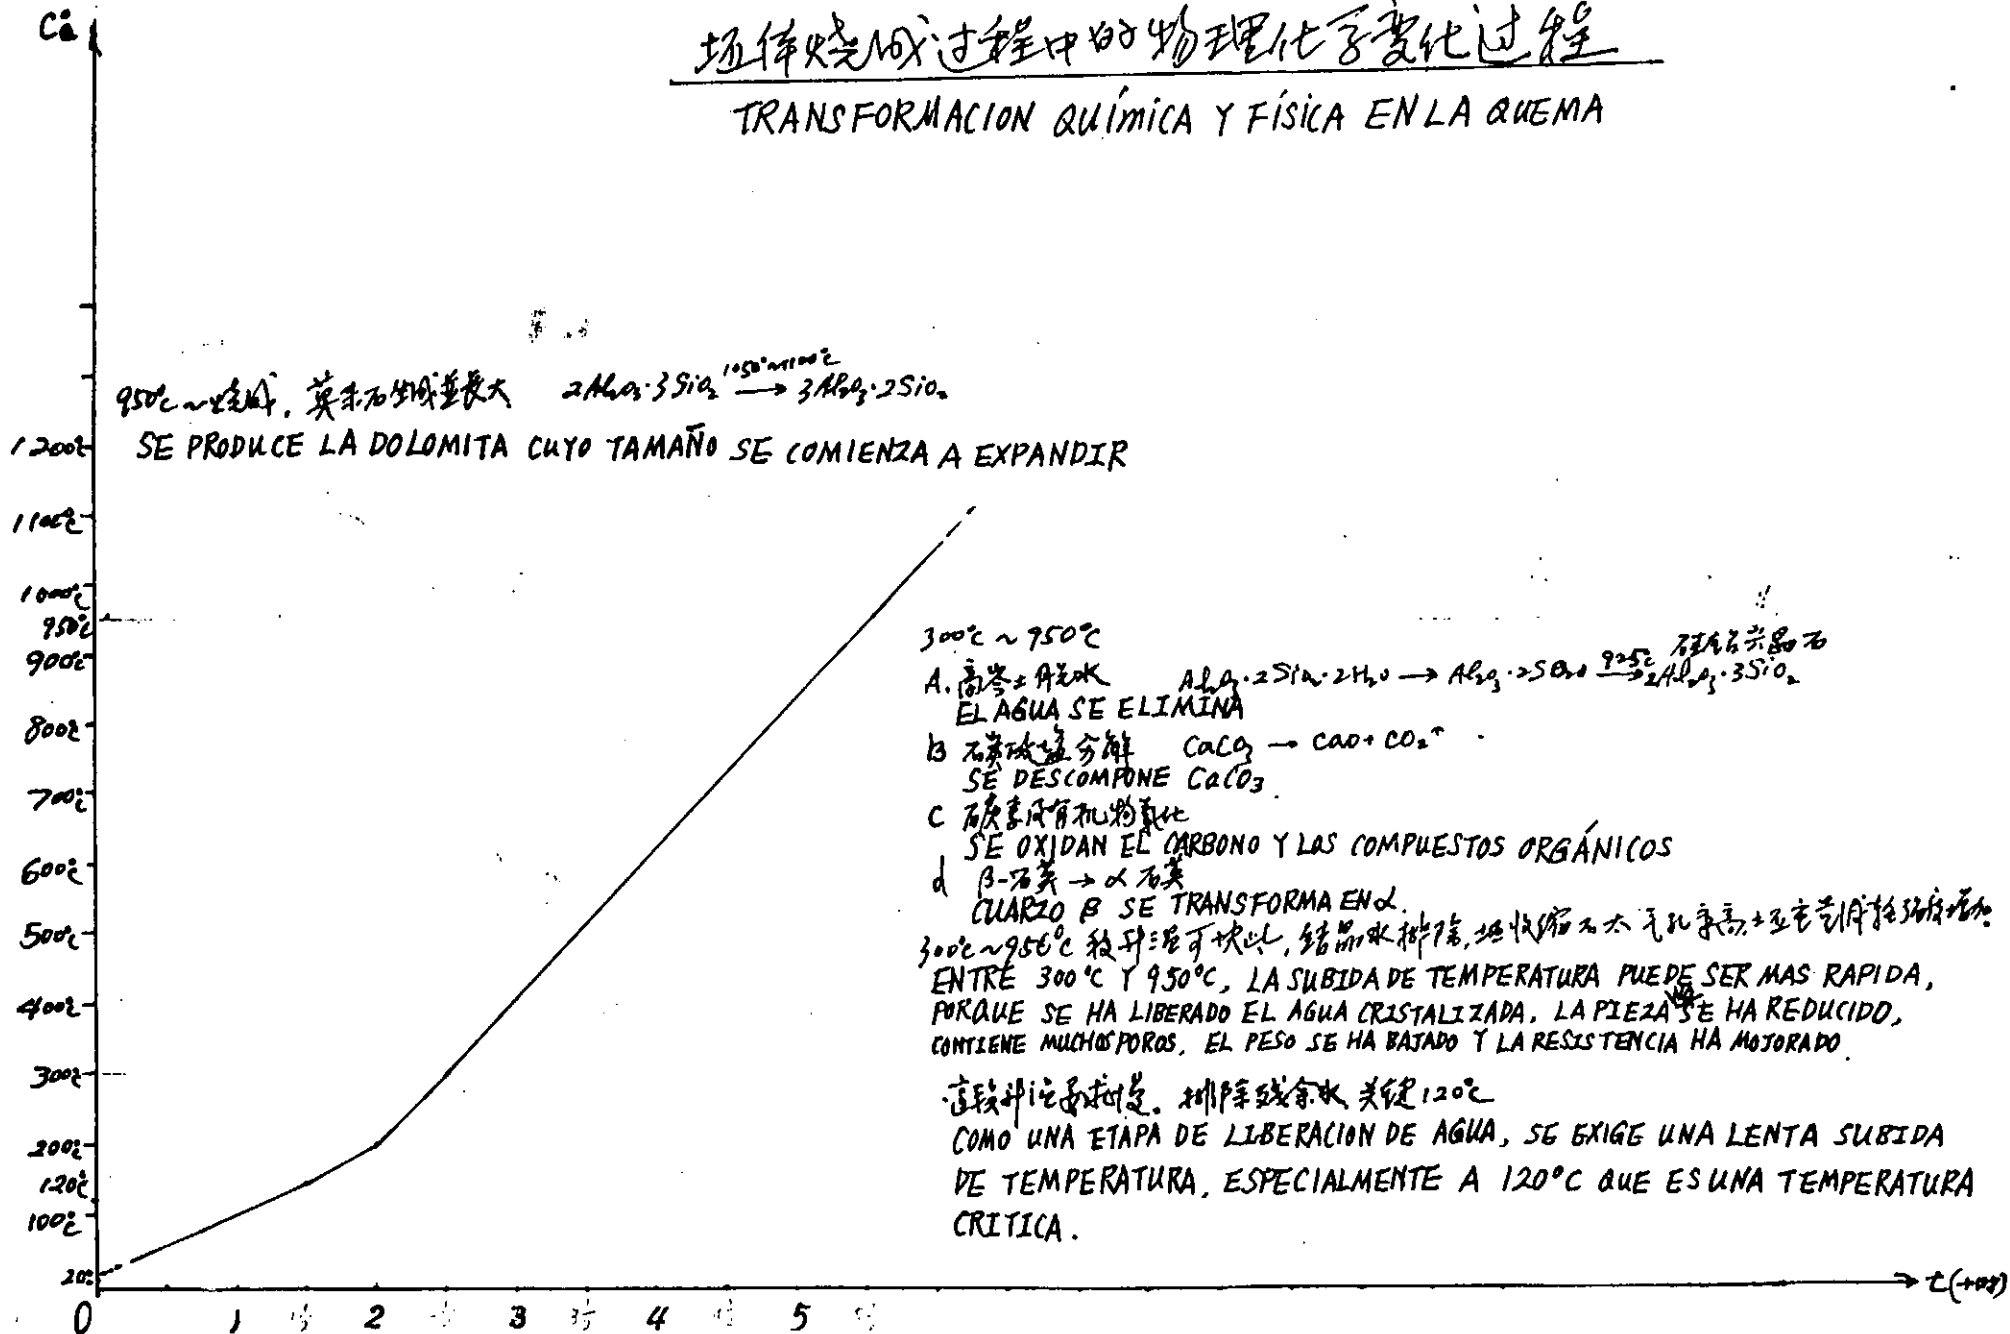 C°
坯体烧成过程中的物理化学变化过程
TRANSFORMACION QUÍMICA Y FÍSICA EN LA QUEMA
950℃~烧成. 莫来石生成並長大 2Al₂O₃·3SiO₂ 1050°~1100℃ → 3Al₂O₃·2SiO₂
SE PRODUCE LA DOLOMITA CUYO TAMAÑO SE COMIENZA A EXPANDIR
1200℃
1100℃
1000℃
950℃
900℃
800℃
700℃
600℃
500℃
400℃
300℃
200℃
120℃
100℃
20℃
300℃~950℃
A. 高岭土脱水 Al₂O₃·2SiO₂·2H₂O → Al₂O₃·2SiO₂ 925℃ → 2Al₂O₃·3SiO₂
EL AGUA SE ELIMINA
B 碳酸盐分解 CaCO₃ → CaO + CO₂↑
SE DESCOMPONE CaCO₃
C 碳素及有机物氧化
SE OXIDAN EL CARBONO Y LOS COMPUESTOS ORGÁNICOS
d β-石英 → α 石英
CUARZO β SE TRANSFORMA EN α.
300℃~950℃ 升温可快些, 结晶水排除, 收缩不大 气孔率高
ENTRE 300℃ Y 950℃, LA SUBIDA DE TEMPERATURA PUEDE SER MAS RAPIDA,
PORQUE SE HA LIBERADO EL AGUA CRISTALIZADA. LA PIEZA SE HA REDUCIDO,
CONTIENE MUCHOS POROS. EL PESO SE HA BAJADO Y LA RESISTENCIA HA MOJORADO.
排除残余水 关键120℃
COMO UNA ETAPA DE LIBERACION DE AGUA, SE EXIGE UNA LENTA SUBIDA
DE TEMPERATURA, ESPECIALMENTE A 120°C QUE ES UNA TEMPERATURA
CRITICA.
0 1 2 3 4 5